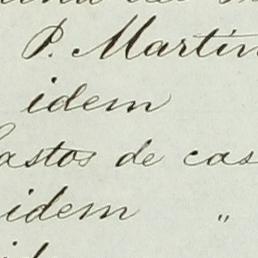 P. Martin
idem
Gastos de cas
idem "